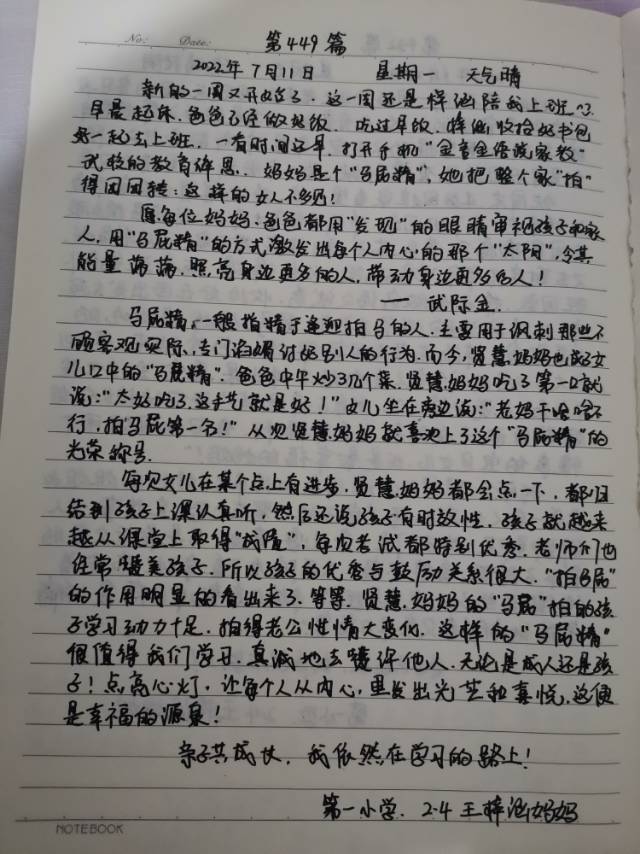 No: Date: 第449篇
2022年7月11日 星期一 天气晴
新的一周又开始了,这一周还是梓涵陪我上班。
早晨起床,爸爸已经做好饭,吃过早饭,梓涵收拾好书包
好一起去上班,一看时间还早,打开手机"金音金语谈家教"
武校的教育 思,妈妈是个"马屁精",她把整个家"拍"
得团团转:这样的女人不多见!
愿每位妈妈、爸爸都用"发现"的眼睛审视孩子和家
人,用"马屁精"的方式激发出每个人内心的那个"太阳",令其
能量满满,照亮身边更多的人,带动身边更多的人!
——武际金.
马屁精,一般指精于逢迎拍马的人,主要用于讽刺那些不
顾客观实际,专门谄媚讨好别人的行为.而今,贤慧妈妈也成女
儿口中的"马屁精".爸爸中午炒了几个菜,贤慧妈妈吃了第一口就
说:"太好吃了,这手艺就是好!"女儿坐在旁边说:"老妈干啥啥不
行,拍马屁第一名!"从此贤慧妈妈就喜欢上了这个"马屁精"的
光荣称号.
每次女儿在某个点上有进步,贤慧妈妈都会点一下,都归
结到孩子上课认真听,然后还说孩子有时效性,孩子就越来
越从课堂上取得"战质",每次考试都特别优秀.老师们也
经常赞美孩子.所以孩子的优秀与鼓励关系很大."拍马屁"
的作用明显的看出来了.等等.贤慧妈妈的"马屁"拍的孩
子学习动力十足,拍得老公性情大变化.这样的"马屁精"
很值得我们学习.真诚地去赞许他人.无论是成人还是孩
子!点亮心灯,让每个人从内心,里发出光芒和喜悦,这便
是幸福的源泉!
亲子共成长,我依然在学习的路上!
第一小学.2.4王梓涵妈妈
NOTEBOOK